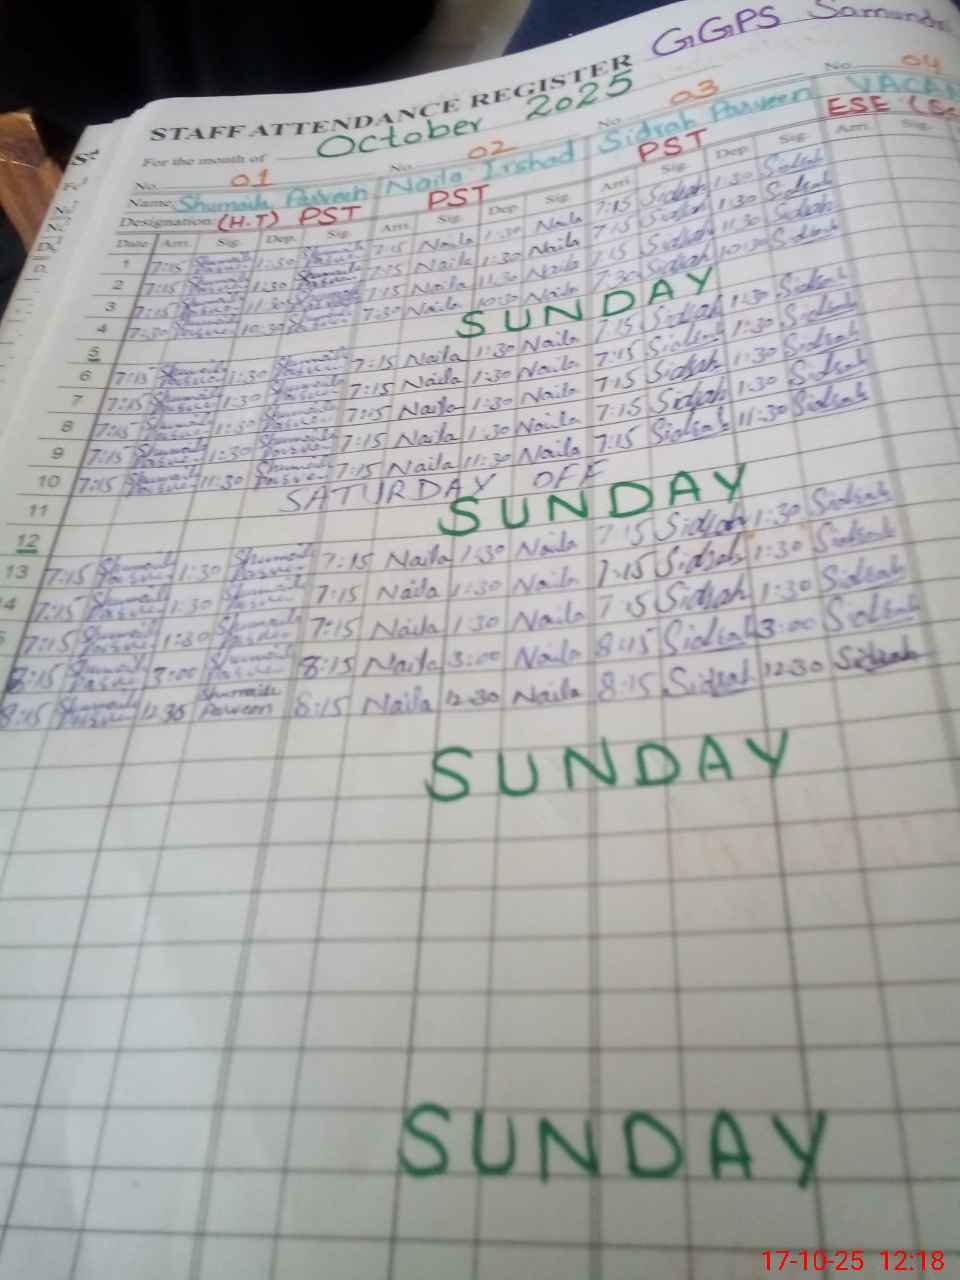 GGPS Samundri
STAFF ATTENDANCE REGISTER
For the month of October 2025
No. 01 No. 02 No. 03 No. 04
Name Shumaila Parveen Naila Irshad Sidrah Parveen VACAN
Designation (H.T) PST PST PST ESE (Sc
Date Arri. Sig. Dep. Sig. Arri. Sig. Dep. Sig. Arri. Sig. Dep. Sig. Arri. Sig.
1 7:15 Shumaila Parveen 1:30 Shumaila Parveen 7:15 Naila 1:30 Naila 7:15 Sidrah 1:30 Sidrah
2 7:15 Shumaila Parveen 1:30 Shumaila Parveen 7:15 Naila 1:30 Naila 7:15 Sidrah 1:30 Sidrah
3 7:15 Shumaila Parveen 11:30 7:15 Naila 11:30 Naila 7:15 Sidrah 11:30 Sidrah
4 7:30 Shumaila Parveen 10:30 Shumaila Parveen 7:30 Naila 10:30 Naila 7:30 Sidrah 10:30 Sidrah
5 SUNDAY
6 7:15 Shumaila Parveen 1:30 Shumaila Parveen 7:15 Naila 1:30 Naila 7:15 Sidrah 1:30 Sidrah
7 7:15 Shumaila Parveen 1:30 Shumaila Parveen 7:15 Naila 1:30 Naila 7:15 Sidrah 1:30 Sidrah
8 7:15 Shumaila Parveen 1:30 Shumaila Parveen 7:15 Naila 1:30 Naila 7:15 Sidrah 1:30 Sidrah
9 7:15 Shumaila Parveen 1:30 Shumaila Parveen 7:15 Naila 1:30 Naila 7:15 Sidrah 1:30 Sidrah
10 7:15 Shumaila Parveen 11:30 Shumaila Parveen 7:15 Naila 11:30 Naila 7:15 Sidrah 11:30 Sidrah
11 SATURDAY OFF
12 SUNDAY
13 7:15 Shumaila Parveen 1:30 Shumaila Parveen 7:15 Naila 1:30 Naila 7:15 Sidrah 1:30 Sidrah
4 7:15 Shumaila Parveen 1:30 Shumaila Parveen 7:15 Naila 1:30 Naila 7:15 Sidrah 1:30 Sidrah
5 7:15 Shumaila Parveen 1:30 Shumaila Parveen 7:15 Naila 1:30 Naila 7:15 Sidrah 1:30 Sidrah
8:15 Shumaila Parveen 3:00 Shumaila Parveen 8:15 Naila 3:00 Naila 8:15 Sidrah 3:00 Sidrah
8:15 Shumaila Parveen 12:30 Shumaila Parveen 8:15 Naila 12:30 Naila 8:15 Sidrah 12:30 Sidrah
SUNDAY
SUNDAY
17-10-25 12:18